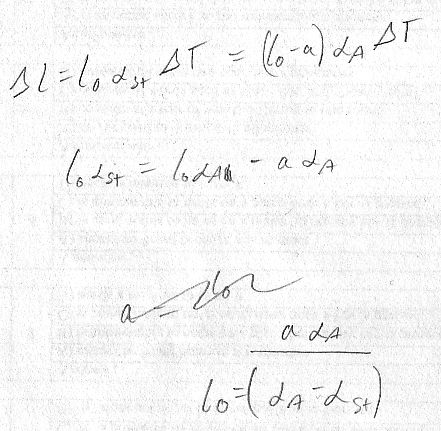 Δl = l₀ α_St ΔT = (l₀ - a) α_A ΔT
l₀ α_St = l₀ α_Al - a α_A
a = l₀
a α_A
l₀ = (α_A - α_St)